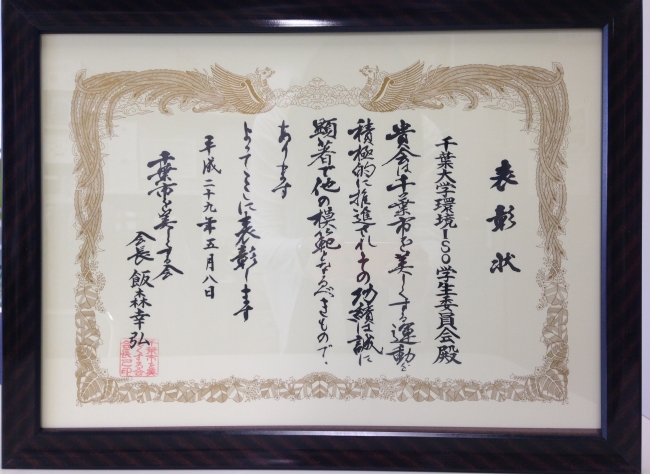 表彰状
千葉大学環境ISO学生委員会殿
貴会は千葉市を美しくする運動を
積極的に推進されその功績は誠に
顕著で他の模範となるべきもので
あります
よってここに表彰します
平成二十九年五月八日
千葉市を美しくする会
会長 飯森幸弘